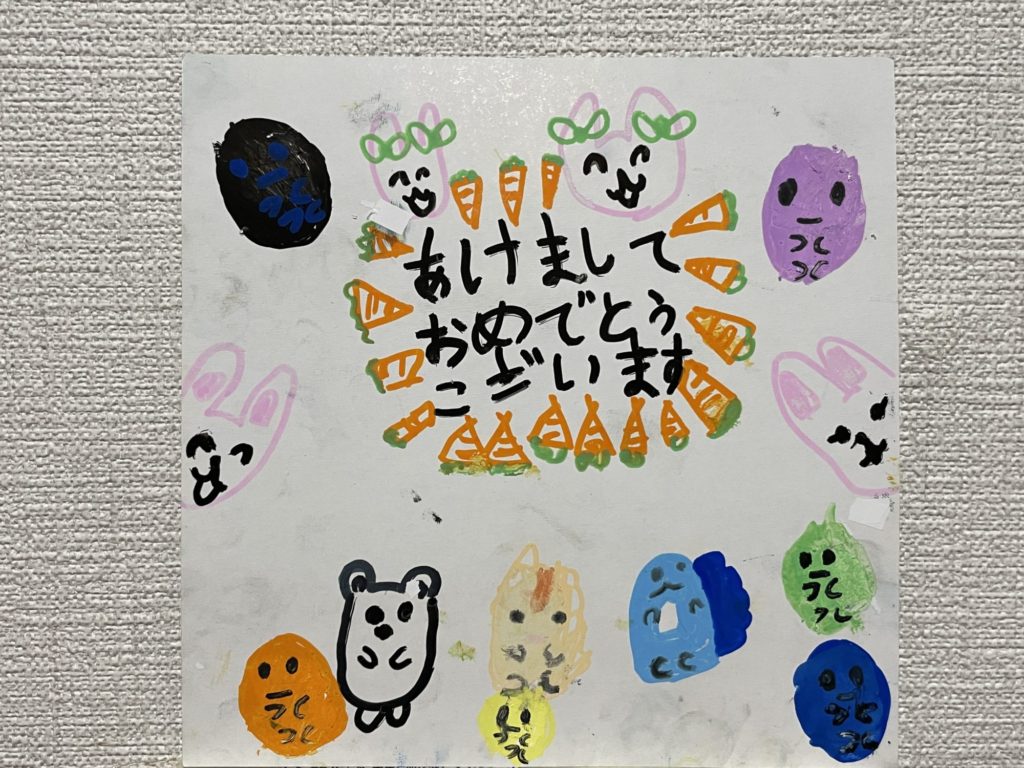 あけまして
おめでとぅ
ございます